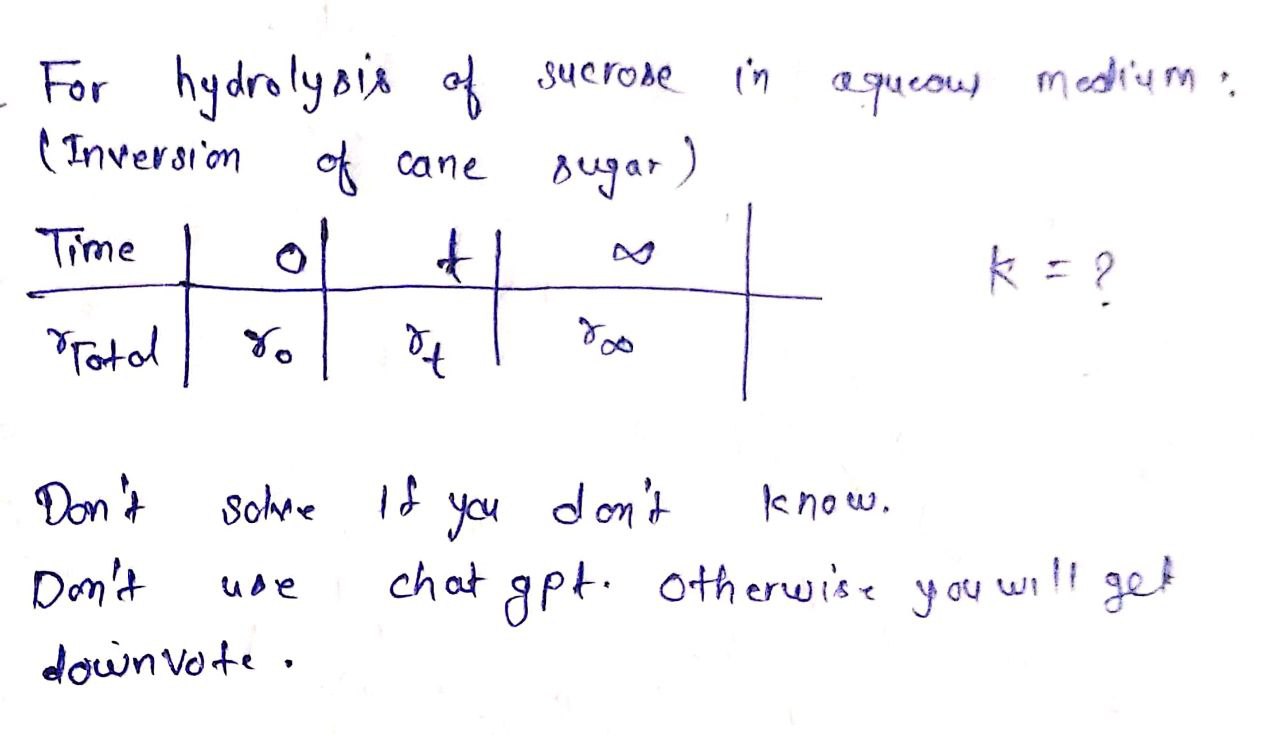 For hydrolysis of sucrose in aqueous medium :
(Inversion of cane sugar)
Time | 0 | t | ∞ | k = ?
rTotal | r₀ | rₜ | r∞
Don't solve If you don't know.
Don't use chat gpt. Otherwise you will get
downvote .